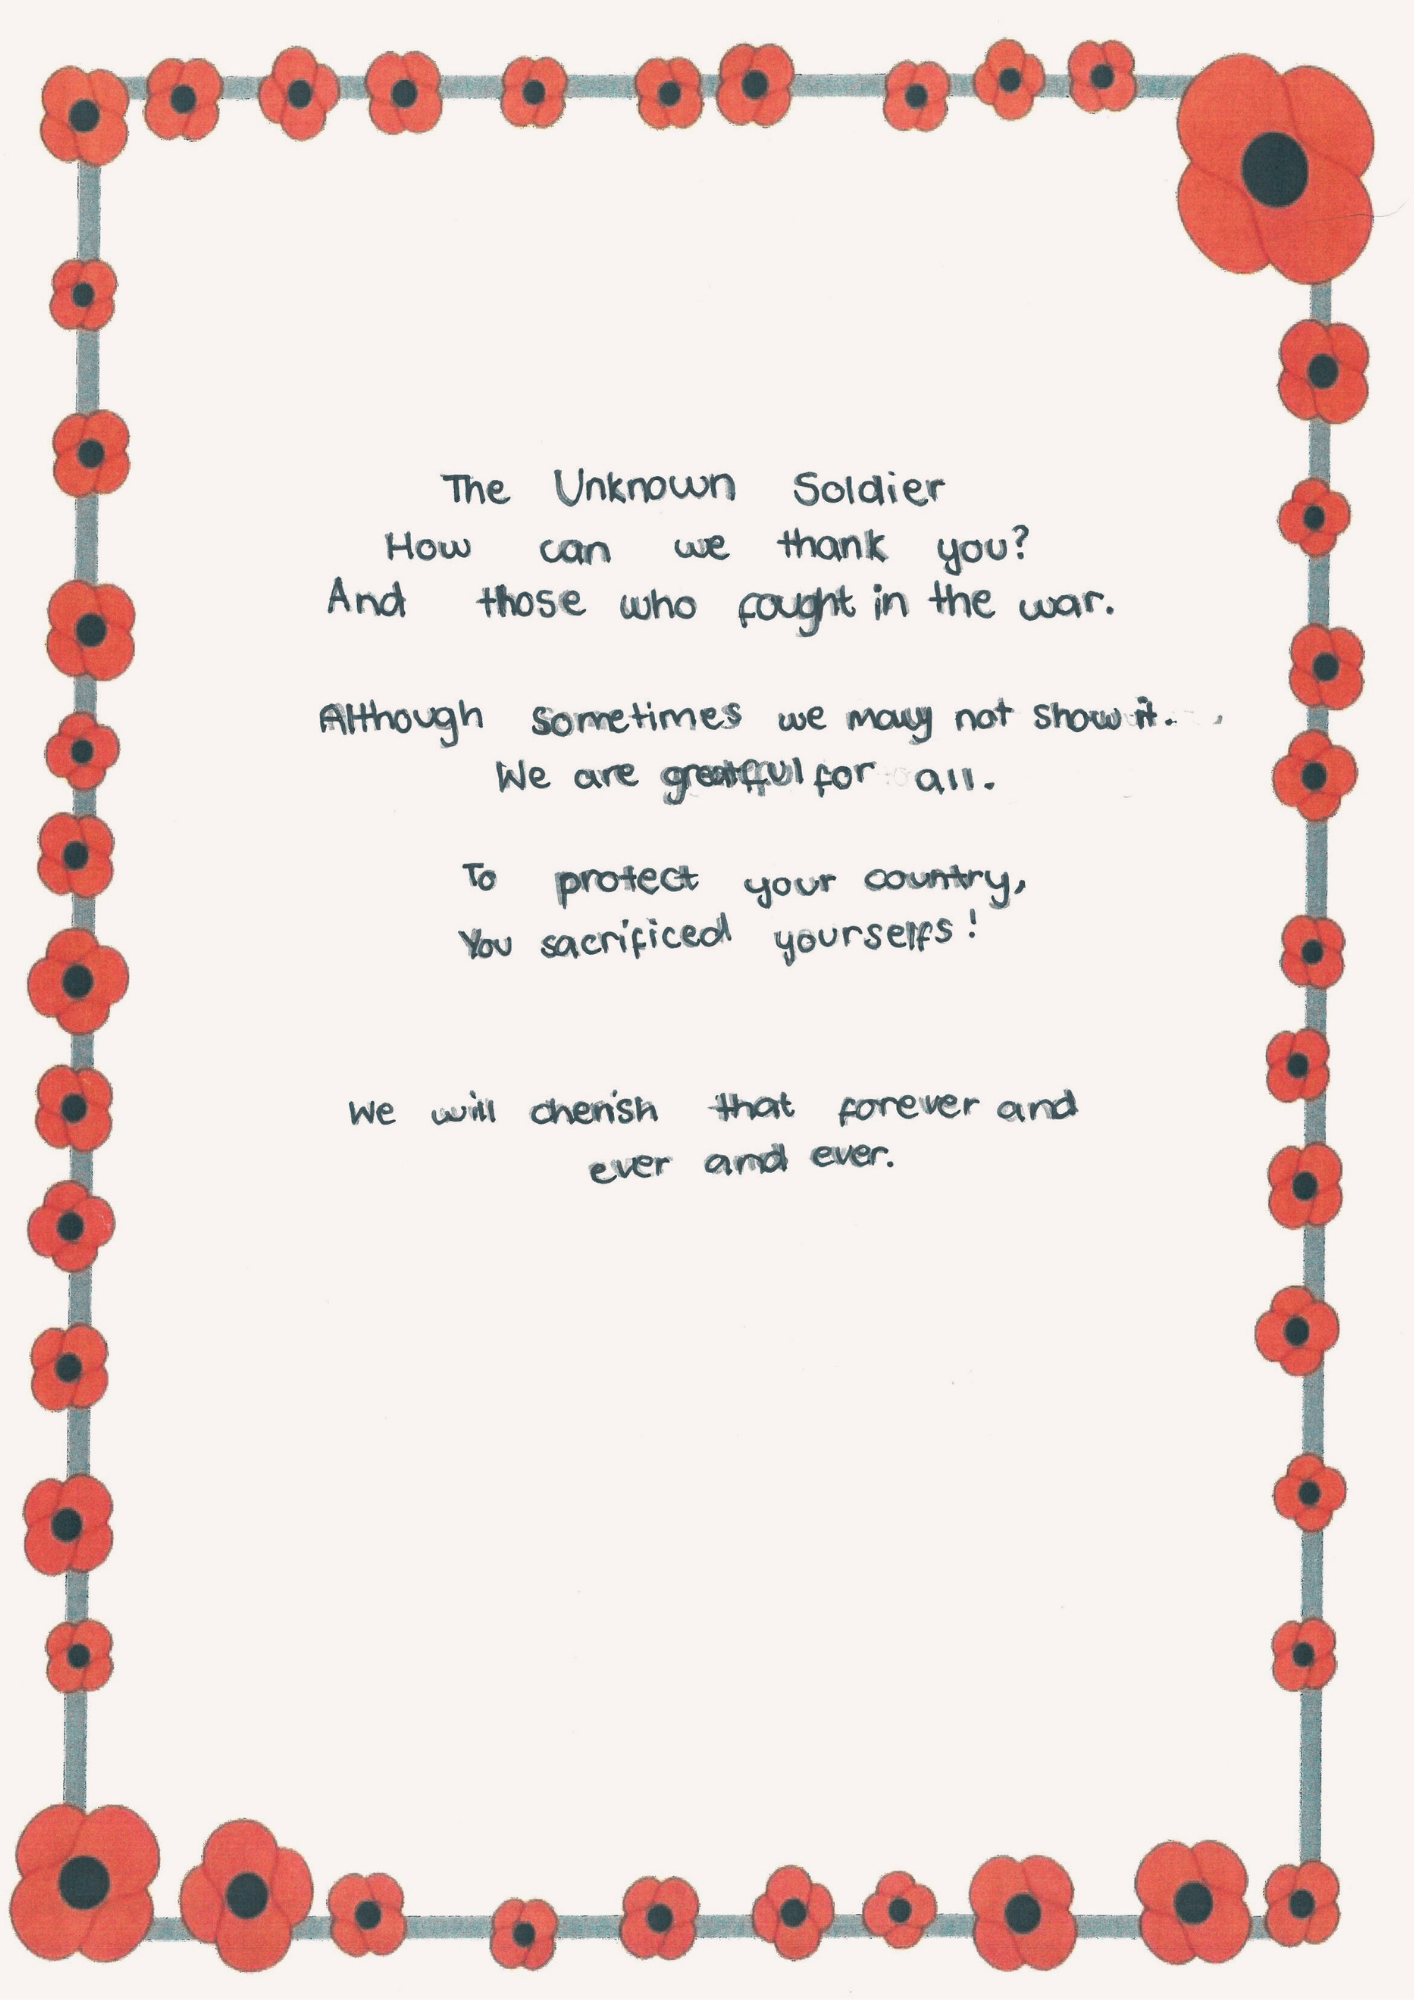 The Unknown Soldier
How can we thank you?
And those who fought in the war.
Although sometimes we may not show it.
We are greatful for all.
To protect your country,
You sacrificed yourselfs!
We will cherish that forever and
ever and ever.